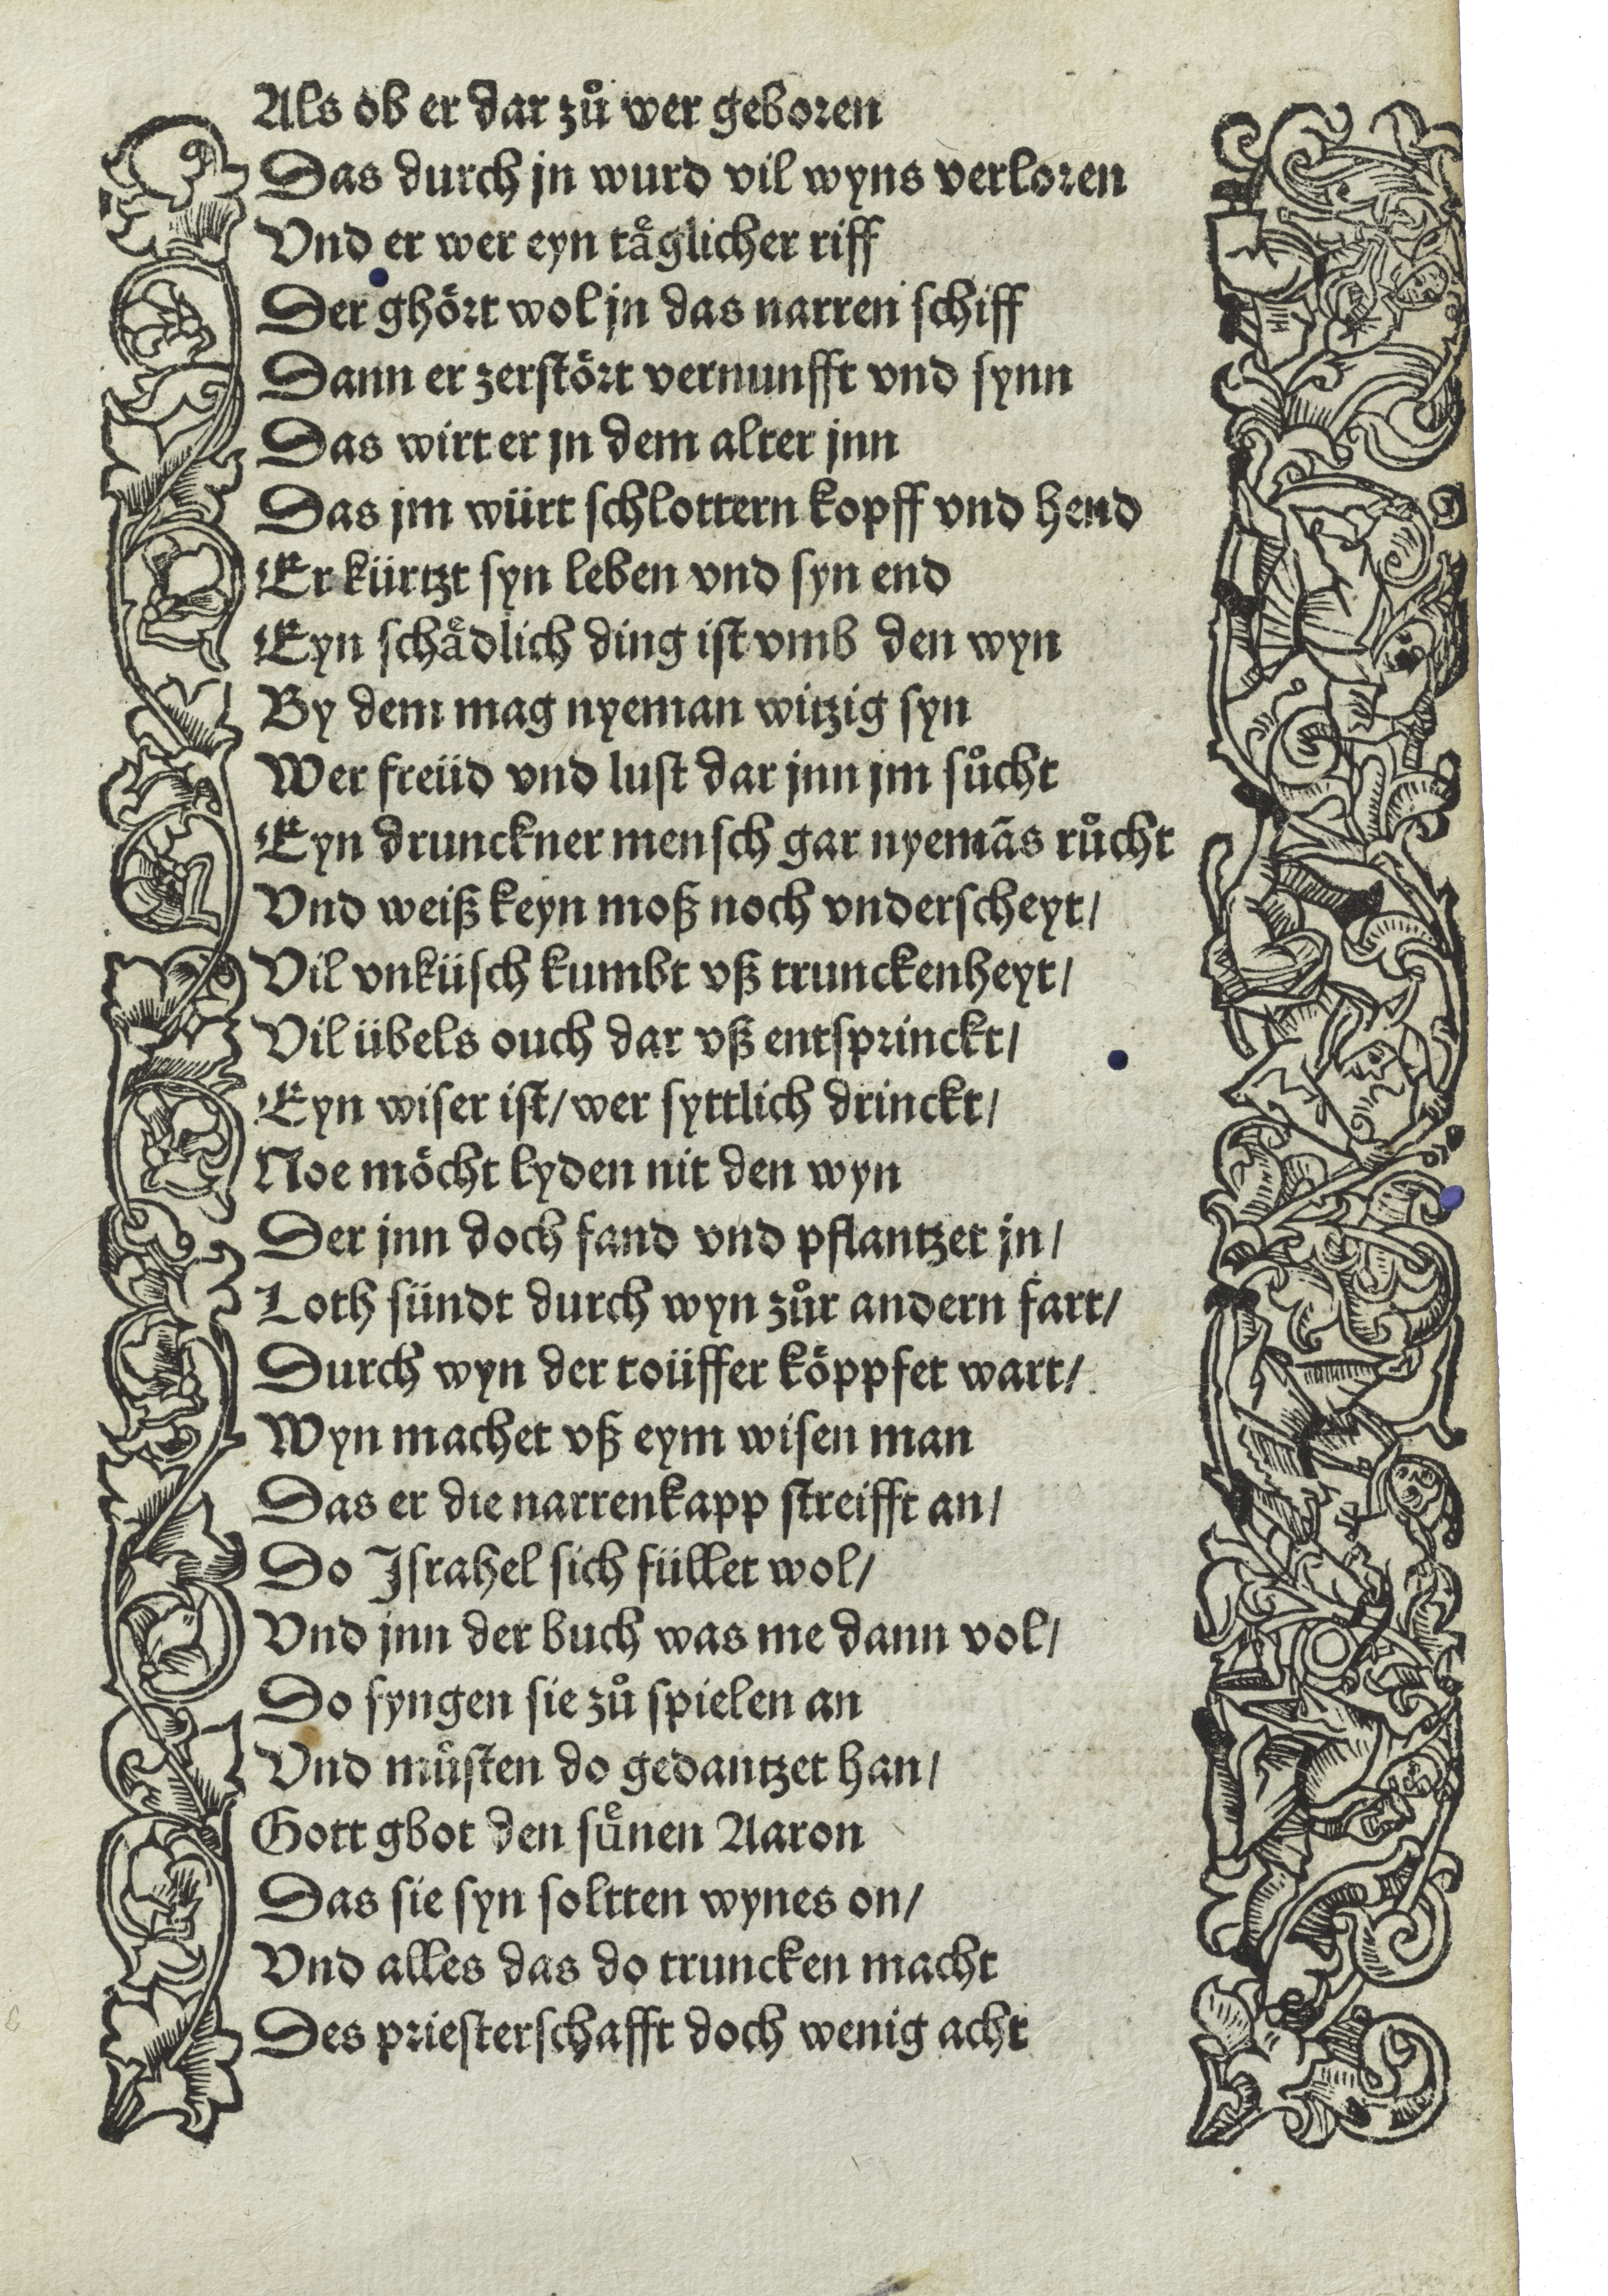 Als ob er dar zuͦ wer geboren
Das durch jn wurd vil wyns verloren
Vnd er wer eyn taͤglicher riff
Der ghoͤrt wol jn das narren schiff
Dann er zerstoͤrt vernunfft vnd synn
Das wirt er jn dem alter jnn
Das jm würt schlottern kopff vnd hend
Er kürtzt syn leben vnd syn end
Eyn schaͤdlich ding ist vmb den wyn
By dem mag nyeman witzig syn
Wer freüd vnd lust dar jnn jm suͦcht
Eyn drunckner mensch gar nyemãs ruͦcht
Vnd weiß keyn moß noch vnderscheyt/
Vil vnküsch kumbt vß trunckenheyt/
Vil übels ouch dar vß entsprinckt/
Eyn wiser ist/ wer syttlich drinckt/
Noe moͤcht lyden nit den wyn
Der jnn doch fand vnd pflantzet jn/
Loth sündt durch wyn zuͦr andern fart/
Durch wyn der toüffer koͤppfet wart/
Wyn machet vß eym wisen man
Das er die narrenkapp streifft an/
Do Israhel sich füllet wol/
Vnd jnn der buch was me dann vol/
Do fyngen sie zuͦ spielen an
Vnd muͦsten do gedantzet han/
Gott gbot den suͤnen Aaron
Das sie syn soltten wynes on/
Vnd alles das do truncken macht
Des priesterschafft doch wenig acht